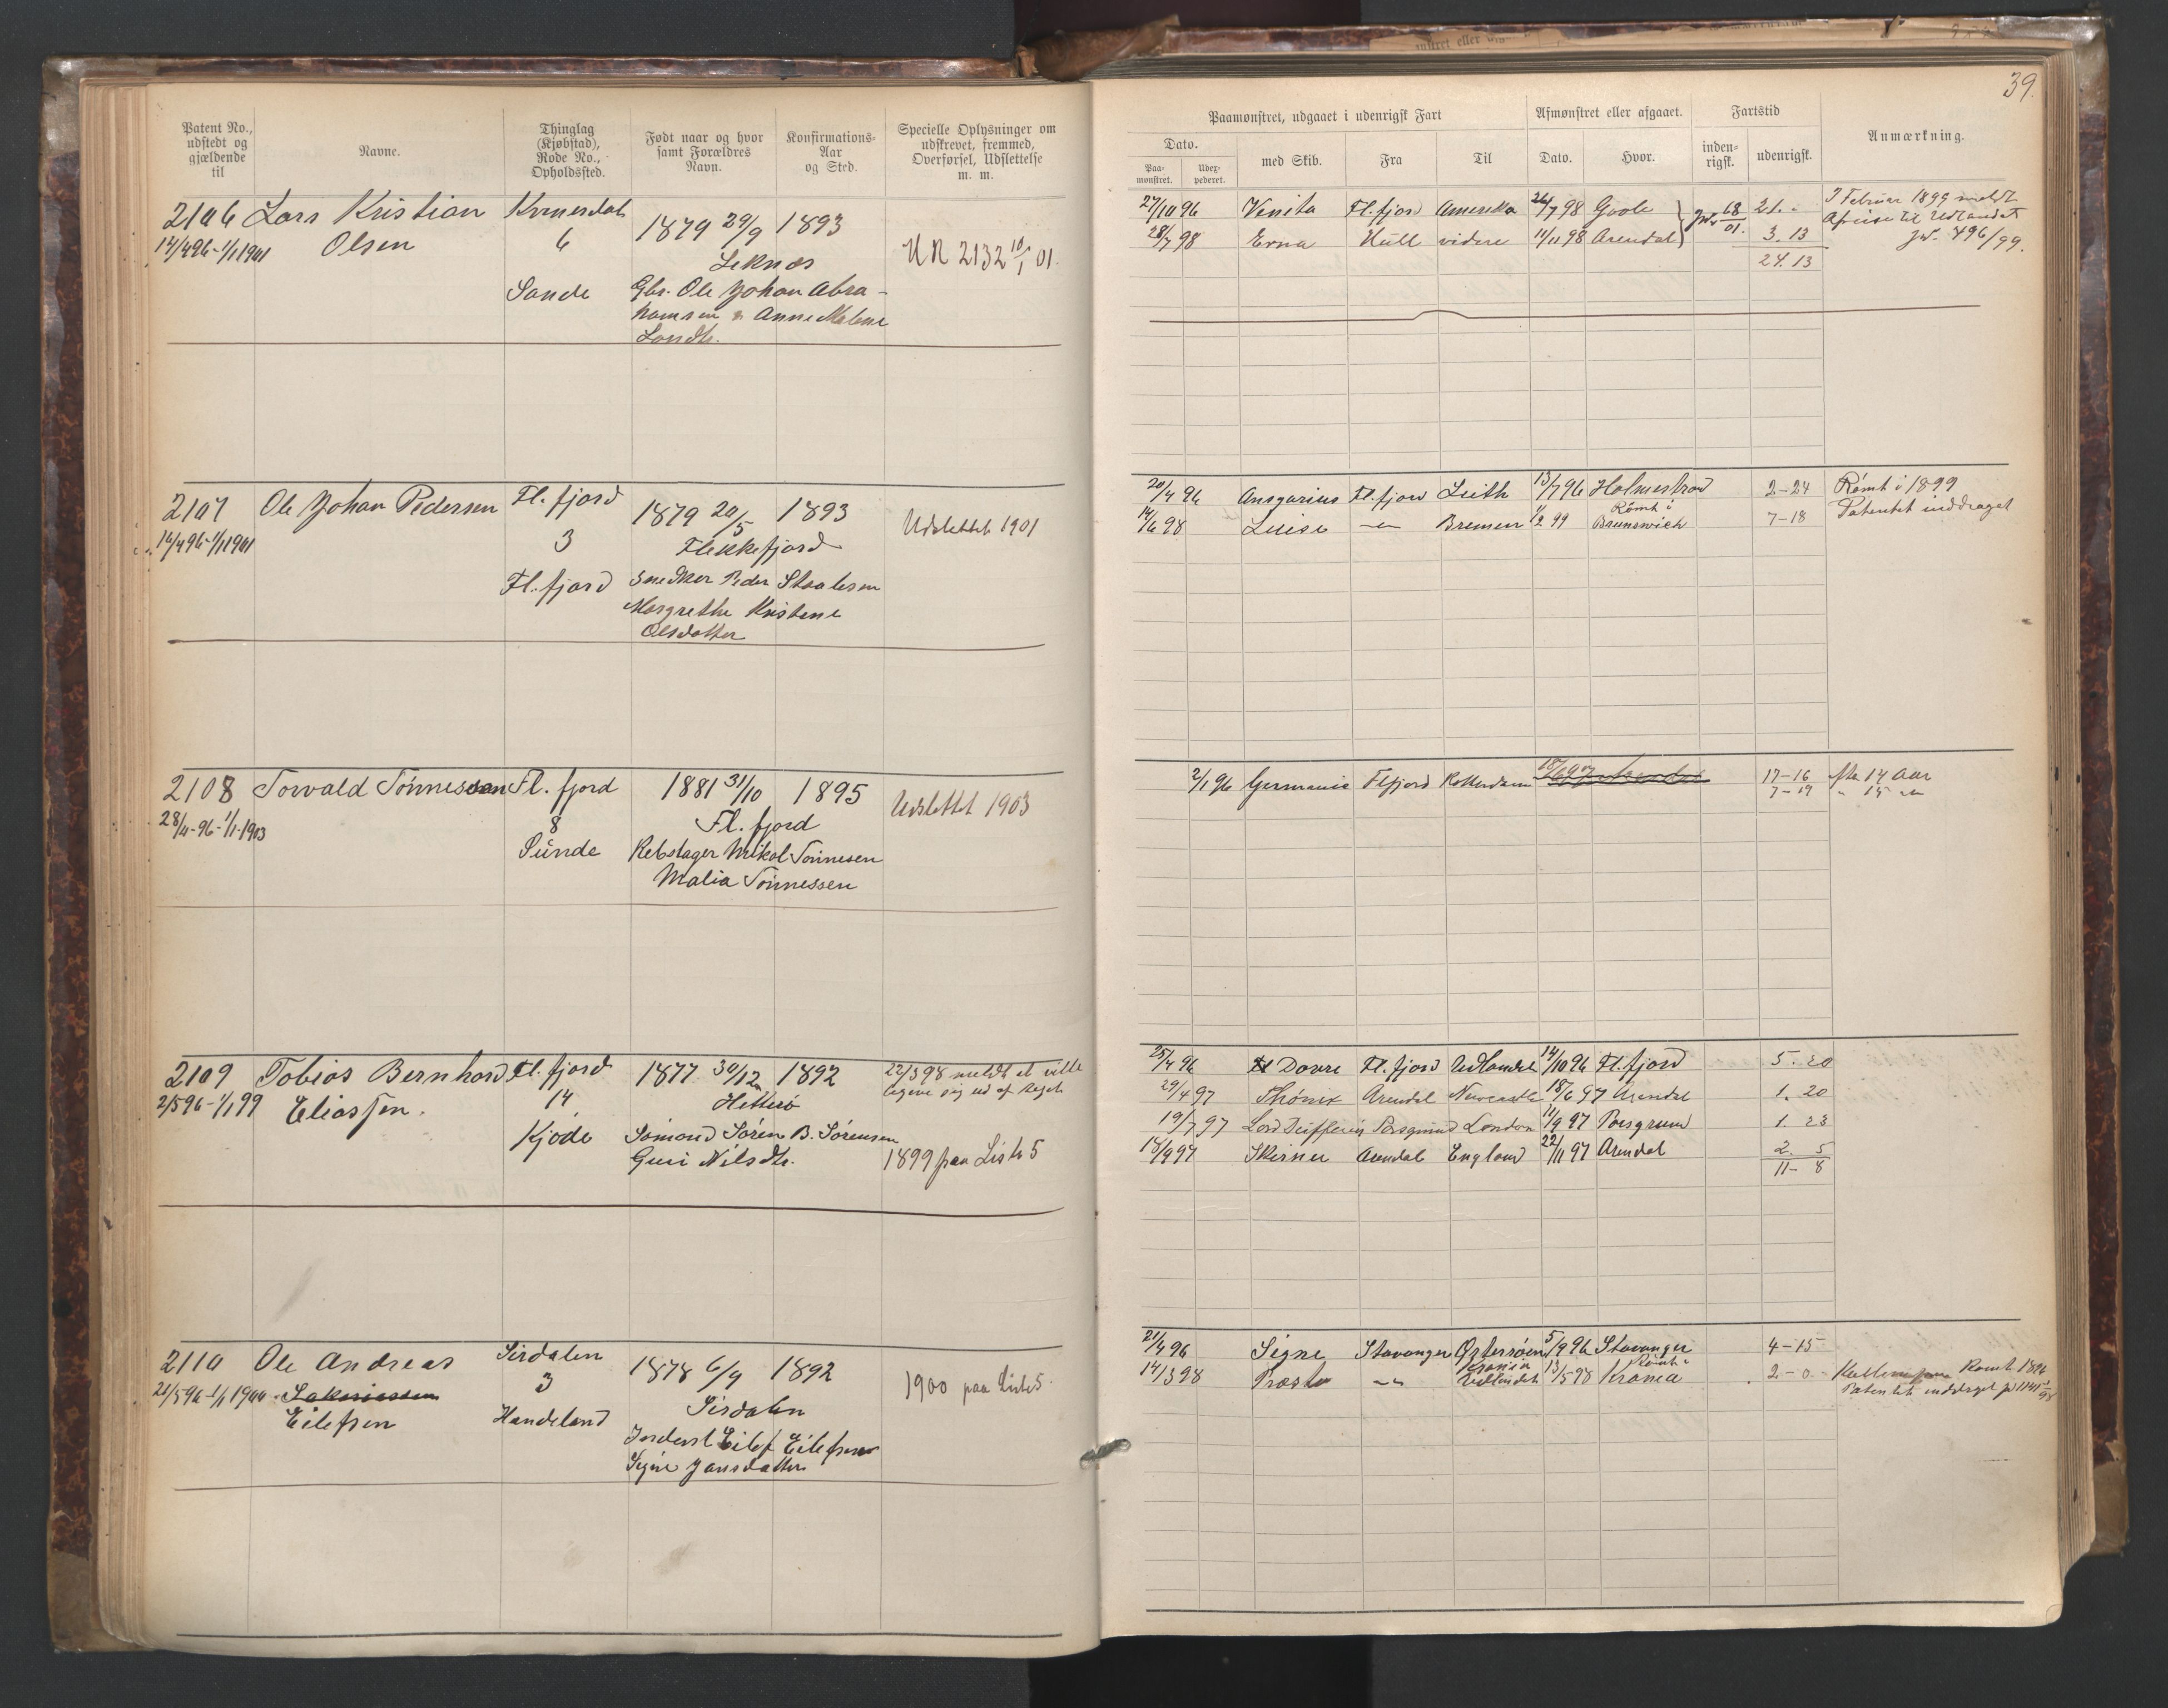 39.
Patent No., udstedt og gjældende til
Navne.
Thinglag (Kjøbstad), Rode No., Opholdssted.
Født naar og hvor samt Forældres Navn.
Konfirmations-Aar og Sted.
Specielle Oplysninger om udskrevet, fremmed, Overførsel, Udslettelse m. m.
Paamønstret, udgaaet i udenrigsk Fart
Afmønstret eller afgaaet.
Fartstid
Anmærkning.
Dato.
Paa-mønstret.
Udex-pederet.
med Skib.
Fra
Til
Dato.
Hvor.
inden-rigsk.
udenrigsk.
2106 Lars Kristian Olsen
14/4 96 - 1/1 1901
6
Sande
1879 29/9 1893
Leknes
Gbr. Ole Johan Abra-
hamsen Anne Malene
Landte.
UR 2132 10/1 01.
27/10 96 Venita Fl.fjord Amerika 26/7 98 Goole 21.-
28/7 98 Erna Hull videre 11/11 98 Arendal 3. 13
24. 13
Jr. 68/01.
I Februar 1899 meldt
Afreise til Udlandet
Jr. 496/99.
2107 Ole Johan Pedersen
14/4 96 - 1/1 1901
Fl.fjord
3
Fl.fjord
1879 20/5 1893
Flekkefjord
Snedker Peder Staalesen
Margrethe Kristene
Olsdatter
Udslettet 1901
20/4 96 Ansgarius Fl.fjord Leith 13/7 96 Holmestrand 2-24
14/6 98 Luise -"- Bremen 1/2 99 Rømt i Brunswich 7-18
Rømt i 1899
Patentet inddraget
2108 Torvald Tönnessen
28/4-96 - 1/1-1903
Fl.fjord
8
Sünde
1881 31/10 1895
Fl.fjord
Rebslager Mikal Tönnesen
Malia Tönnessen
Udslettet 1903
2/1 96 Germania Flfjord Rotterdam
17-16 før 14 Aar
7-19 " 15 "
2109 Tobias Bernhard Eliassen.
2/5 96 - 1/1 99
Fl.fjord
14
Kjøde
1877 30/12 1892
Hitterö
Sömand Sören B. Sörensen
Guri Nilsdtr.
22/3 98 meldt at ville
tegne sig ud af
1899 paa Liste 5
25/4 96 Dovre Fl.fjord Udlandet 14/10 96 Fl.fjord 5. 20
29/4 97 Phönix Arendal Newcastle 18/6 97 Arendal 1. 20
19/7 97 Lord Dufferin Porsgrund London 11/9 97 Porsgrund 1. 23
18/9 97 Skirner Arendal England 22/11 97 Arendal 2. 5
11- 8
2110 Ole Andreas
21/5 96 - 1/1 1900 Sakariassen
Eilefsen
Sirdalen
3
Handeland
1878 6/9 1892
Sirdalen
Inderst Eilef Eilefsen
Signe Jansdatter
1900 paa Liste 5.
21/4 96 Signe Stavanger Østersøen 5/9 96 Stavanger 4-15
14/3 98 Præsto -"- Krania Udlandet 13/5-98 Rømt i Krania 2-0
Rømt 1898
Patentet inddraget